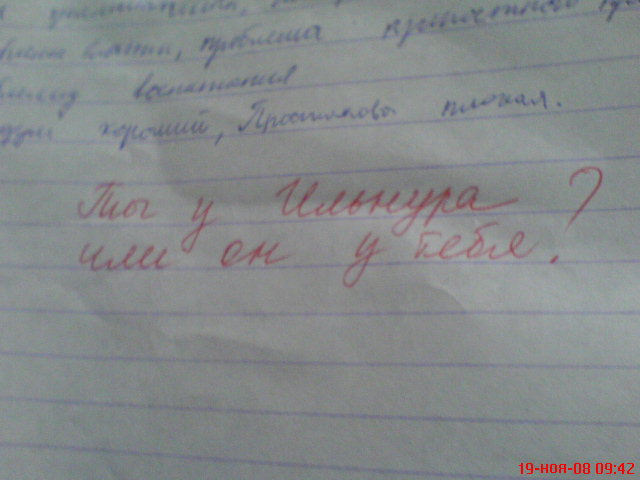 власти, проблема крепостного
воспитания
хороший, Простакова плохая.
Ты у Ильнура
или он у тебя?
19-НОЯ-08 09:42